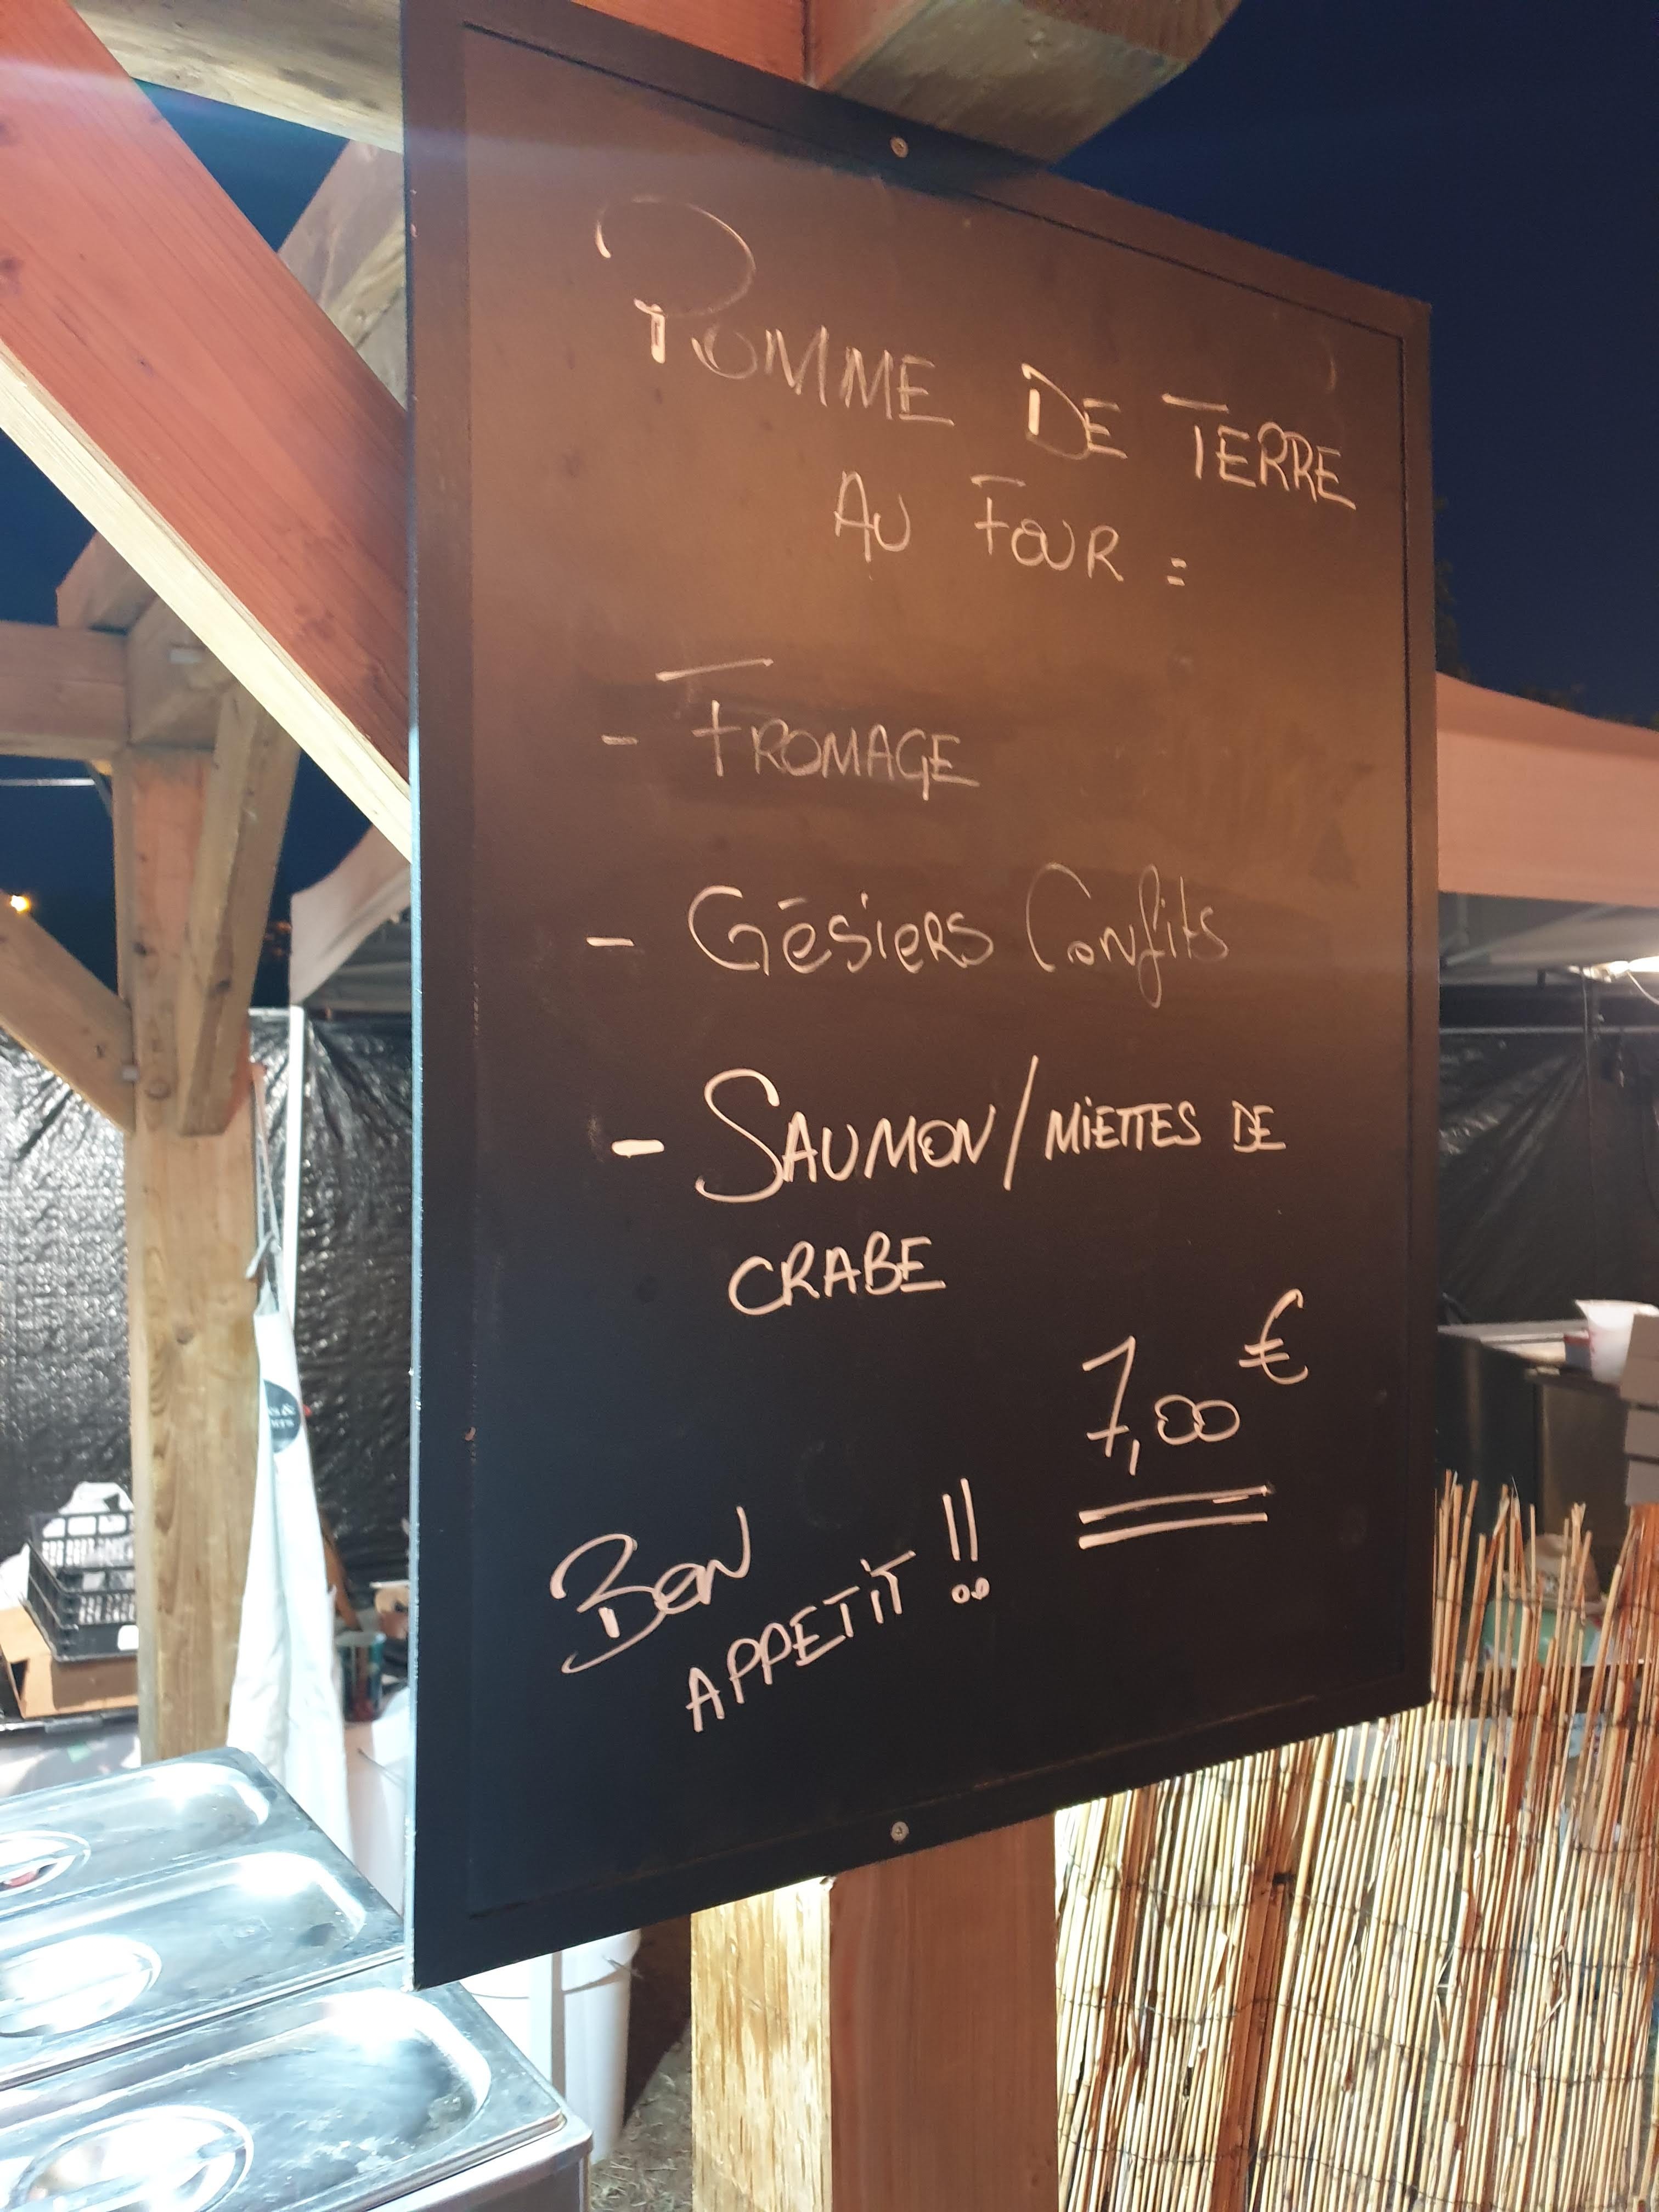 POMME DE TERRE
AU FOUR :
- FROMAGE
- Gésiers Confits
- SAUMON/MIETTES DE
CRABE
7,00 €
BON
APPETIT !!